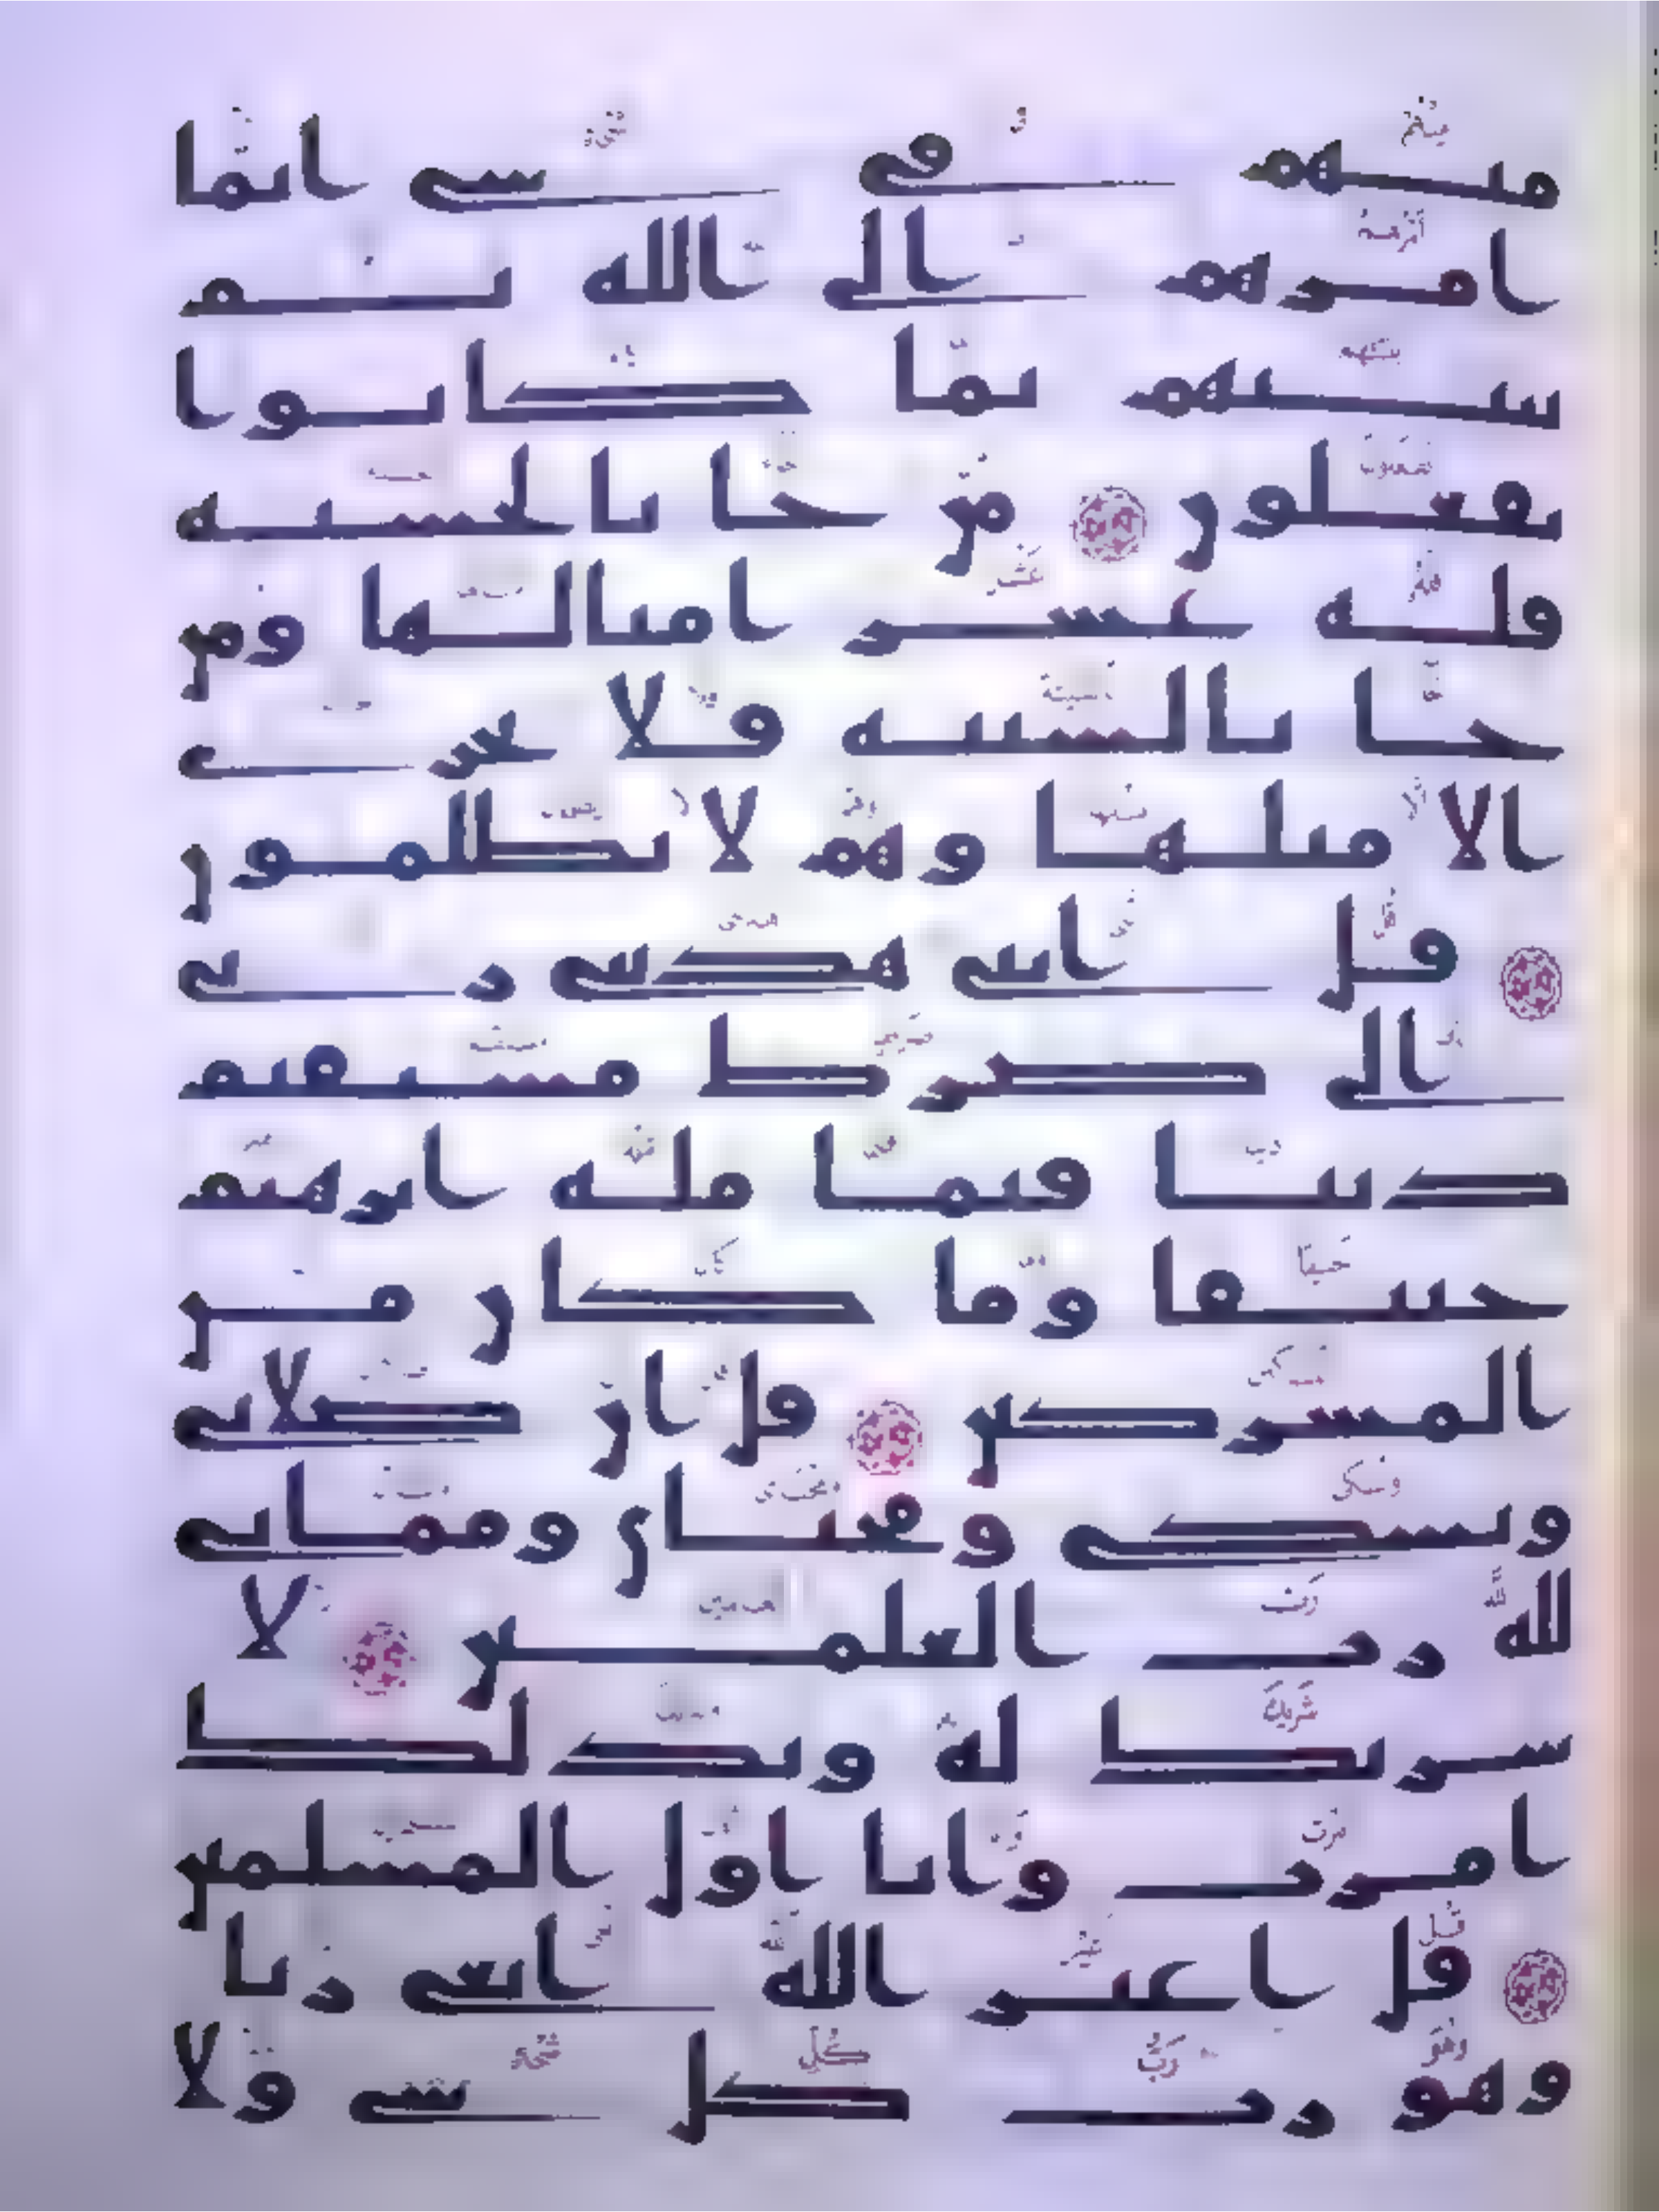 منهم في شي انما
امرهم الى الله ثم
ينبيهم بما كانوا
يفعلون من جا بالحسنه
فله عشر امثالها ومن
جا بالسييه فلا يجزى
الا مثلها وهم لا يظلمون
قل انني هدىني ربي
الى صرط مستقيم
دينا قيما مله ابرهيم
حنيفا وما كان من
المشركين قل ان صلاتي
ونسكي ومحياي ومماتي
لله رب العلمين لا
شريك له وبذلك
امرت وانا اول المسلمين
قل اغير الله ابغي ربا
وهو رب كل شي ولا